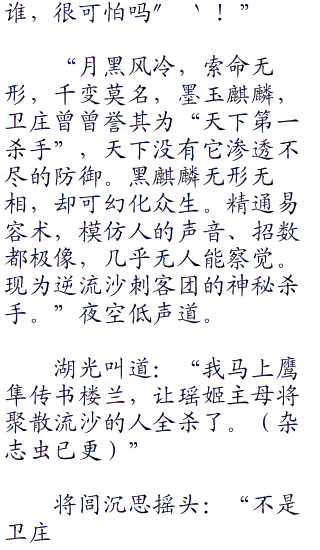 谁，很可怕吗〞 ‵！”
“月黑风冷，索命无
形，千变莫名，墨玉麒麟，
卫庄曾曾誉其为“天下第一
杀手”，天下没有它渗透不
尽的防御。黑麒麟无形无
相，却可幻化众生。精通易
容术，模仿人的声音、招数
都极像，几乎无人能察觉。
现为逆流沙刺客团的神秘杀
手。”夜空低声道。
湖光叫道：“我马上鹰
隼传书楼兰，让瑶姬主母将
聚散流沙的人全杀了。（杂
志虫已更）”
将闾沉思摇头：“不是
卫庄